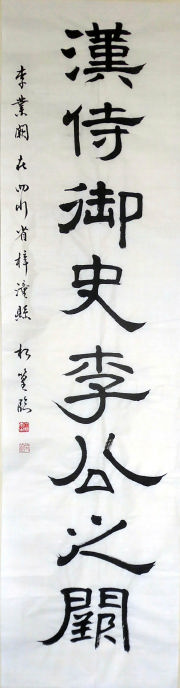 漢侍御史李公之闕
李業闕在四川省梓潼縣 松堂臨